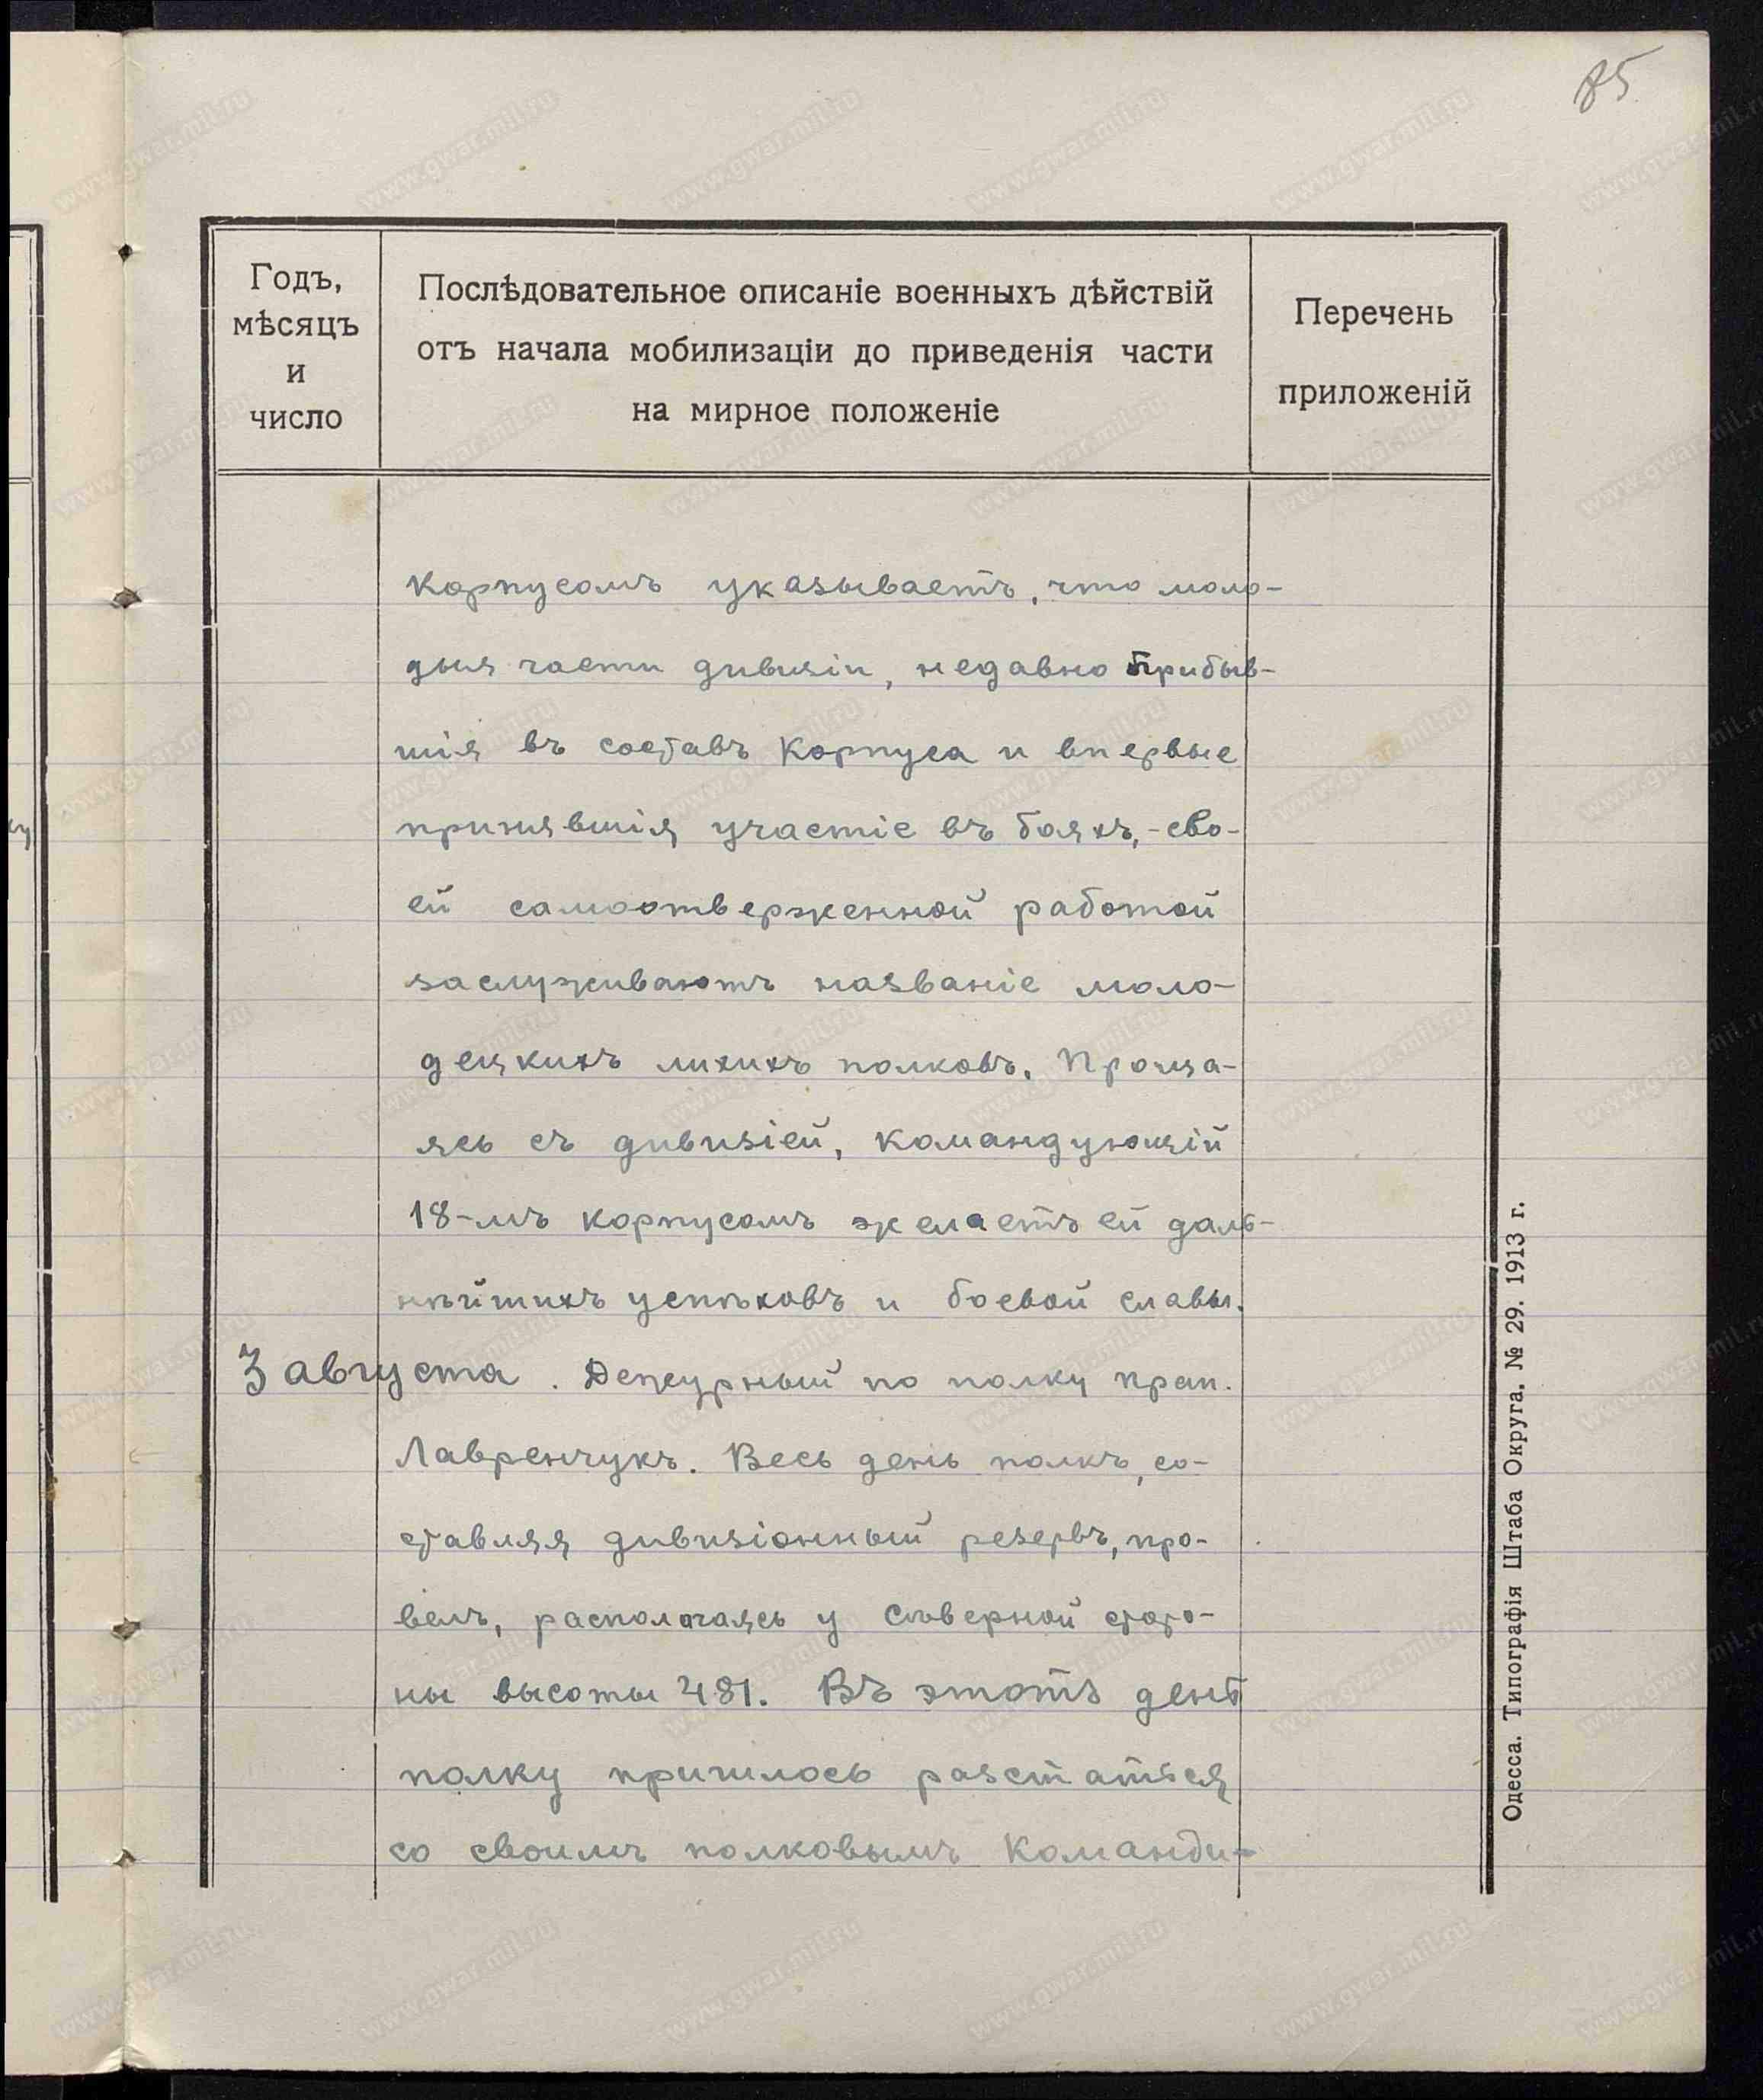 85
Годъ,
мѣсяцъ
и
число
Послѣдовательное описаніе военныхъ дѣйствій
отъ начала мобилизаціи до приведенія части
на мирное положеніе
Перечень
приложеній
корпусомъ указываетъ, что моло-
дыя части дивизіи, недавно прибыв-
шія въ составъ корпуса и впервые
принявшія участіе въ бояхъ, - сво-
ей самоотверженной работой
заслуживаютъ названіе моло-
децкихъ лихихъ полковъ. Проща-
ясь съ дивизіей, командующій
18-мъ корпусомъ желаетъ ей даль-
нѣйшихъ успѣховъ и боевой славы.
3 августа. Дежурный по полку прап.
Лавренчукъ. Весь день полкъ, со-
ставляя дивизіонный резервъ, про-
велъ, располагаясь у сѣверной сторо-
ны высоты 481. Въ этотъ день
полку пришлось разстаться
со своимъ полковымъ команди-
Одесса. Типографія Штаба Округа. № 29. 1913 г.
www.gwar.mil.ru